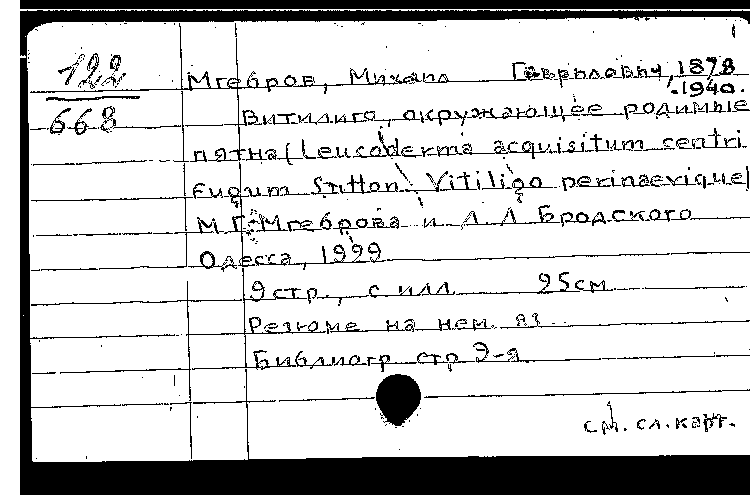 1
122
668
Мгебров, Михаил Гаврилович, 1878
-1940.
Витилиго, окружающее родимые
пятна (Leucoderma acquisitum centri
fugum Sutton. Vitiligo perinaevique)
М. Г. Мгеброва и Л. Л. Бродского
Одесса, 1929
9 стр., с илл. 25 см
Резюме на нем. яз.
Библиогр. стр. 9-я
см. сл. карт.